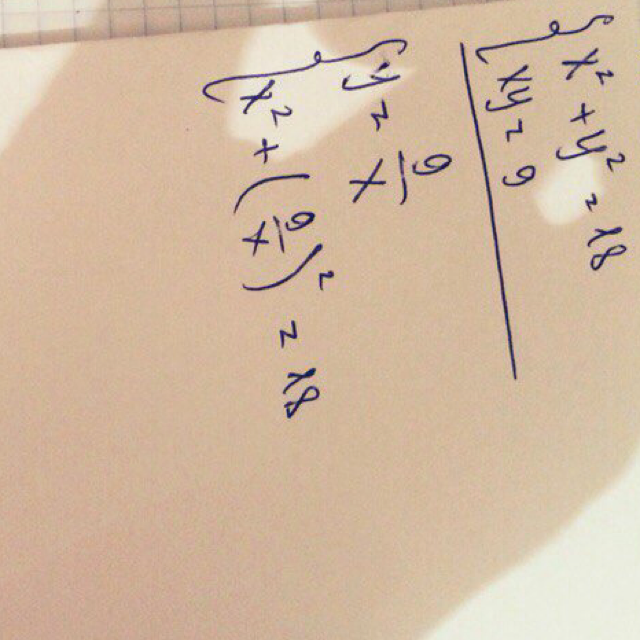 x² + y² = 18
xy = 9
y = 9/x
x² + (9/x)² = 18